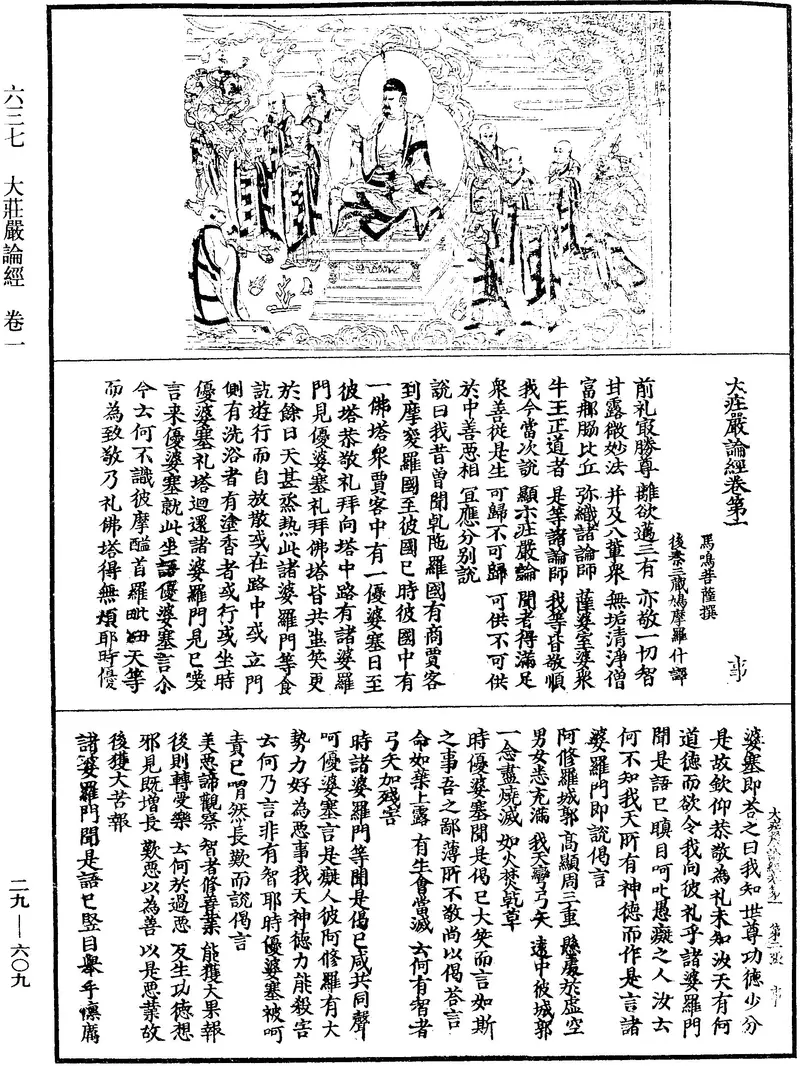 六三七　大莊嚴論經　卷一
大莊嚴論經卷第一
馬鳴菩薩撰
後秦三藏鳩摩羅什譯
前礼冣勝尊　離欲邁三有　亦敬一切智
甘露微妙法　并及八輩衆　無垢清淨僧
富郍脇比丘　弥織諸論師　薩婆室婆衆
牛王正道者　是等諸論師　我等皆敬順
我今當次說　顯示莊嚴論　聞者得滿足
衆善從是生　可歸不可歸　可供不可供
於中善惡相　冝應分別說
說曰我昔曾聞乹陁羅國有商賈客
到摩突羅國至彼國已時彼國中有
一佛塔衆賈客中有一優婆塞日至
彼塔恭敬礼拜向塔中路有諸婆羅
門見優婆塞礼拜佛塔皆共蚩笑更
於餘日天甚烝熱此諸婆羅門等食
訖遊行而自放散或在路中或立門
側有洗浴者有塗香者或行或坐時
優婆塞礼塔迴還諸婆羅門見已喚
言來優婆塞就此坐語優婆塞言尒
今云何不識彼摩醯首羅毗紐天等
而為致敬乃礼佛塔得無煩耶時優
婆塞即荅之曰我知世尊功德少分
是故欽仰恭敬為礼未知汝天有何
道德而欲令我向彼礼乎諸婆羅門
聞是語已瞋目呵叱愚癡之人汝云
何不知我天所有神德而作是言諸
婆羅門即說偈言
阿修羅城郭　高顯周三重　懸處於虛空
男女悉充滿　我天彎弓矢　遠中彼城郭
一念盡燒滅　如火焚乹草
時優婆塞聞是偈已大笑而言如斯
之事吾之鄙薄所不敬尚以偈荅言
命如葉上露　有生會當滅　云何有智者
弓矢加殘害
時諸婆羅門等聞是偈已咸共同聲
呵優婆塞言是癡人彼阿修羅有大
勢力好為惡事我天神德力能殺害
云何乃言非有智耶時優婆塞被呵
責已喟然長歎而說偈言
美惡諦觀察　智者修善業　能獲大果報
後則轉受樂　云何於過惡　反生功德想
邪見既增長　歎惡以為善　以是惡業故
後獲大苦報
諸婆羅門聞是語已竪目舉手懍厲
二九—六〇九